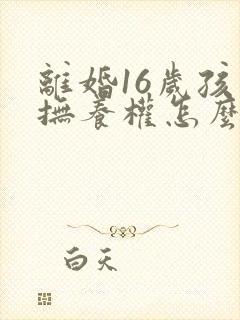 離婚16歲孩
撫養權怎麼
白天